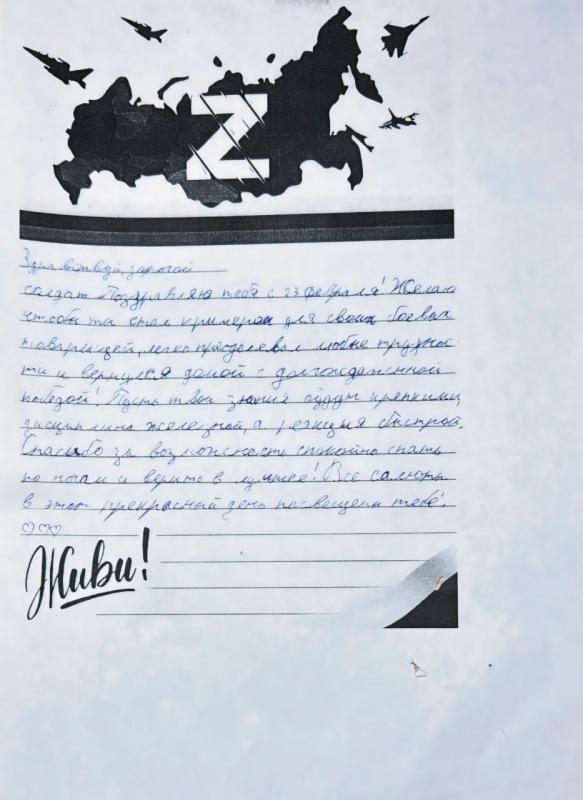 Z
Здравствуй, дорогой
солдат Поздравляю тебя с 23 февраля! Желаю
чтобы ты стал примером для своих боевых
товарищей, легко преодолевал любые труднос-
ти и вернулся домой с долгожданной
победой! Пусть твои знания будут крепкими,
дисциплина железной, а реакция быстрой.
Спасибо за возможность спокойно спать
по ночам и верить в лучшее! Все салюты
в этот прекрасный день посвещены тебе!
♡♡♡
Живи!